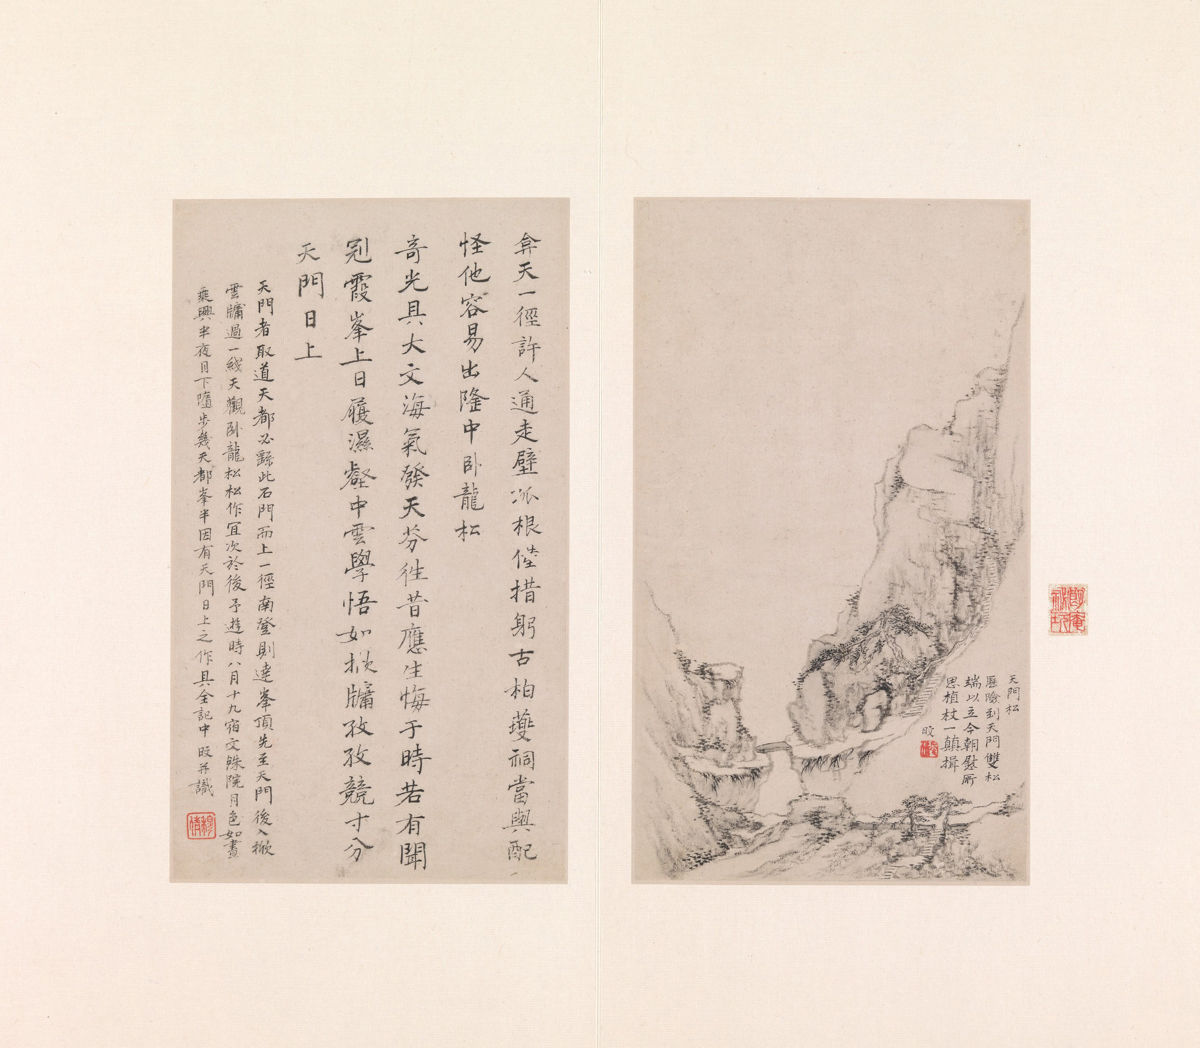 天門松
歷險到天門雙松
端以立今朝慰所
思植杖一顛揖
旼
弇天一徑許人通走壁根措躬古柏夔祠當與配
怪他容易出隆中臥龍松
奇光具大文海氣發天芬往昔應生悔于時若有聞
冠霞峯上日履濕壑中雲學悟如掀牖孜孜競寸分
天門日上
天門者取道天都必繇此石門而上一徑南登則達峯頂先至天門後入掀
雲牖過一綫天觀臥龍松松作宜次於後予遊時八月十九宿文殊院月色如晝
乘興半夜月下隨步幾天都峯半因有天門日上之作具全記中旼并識
穆倩